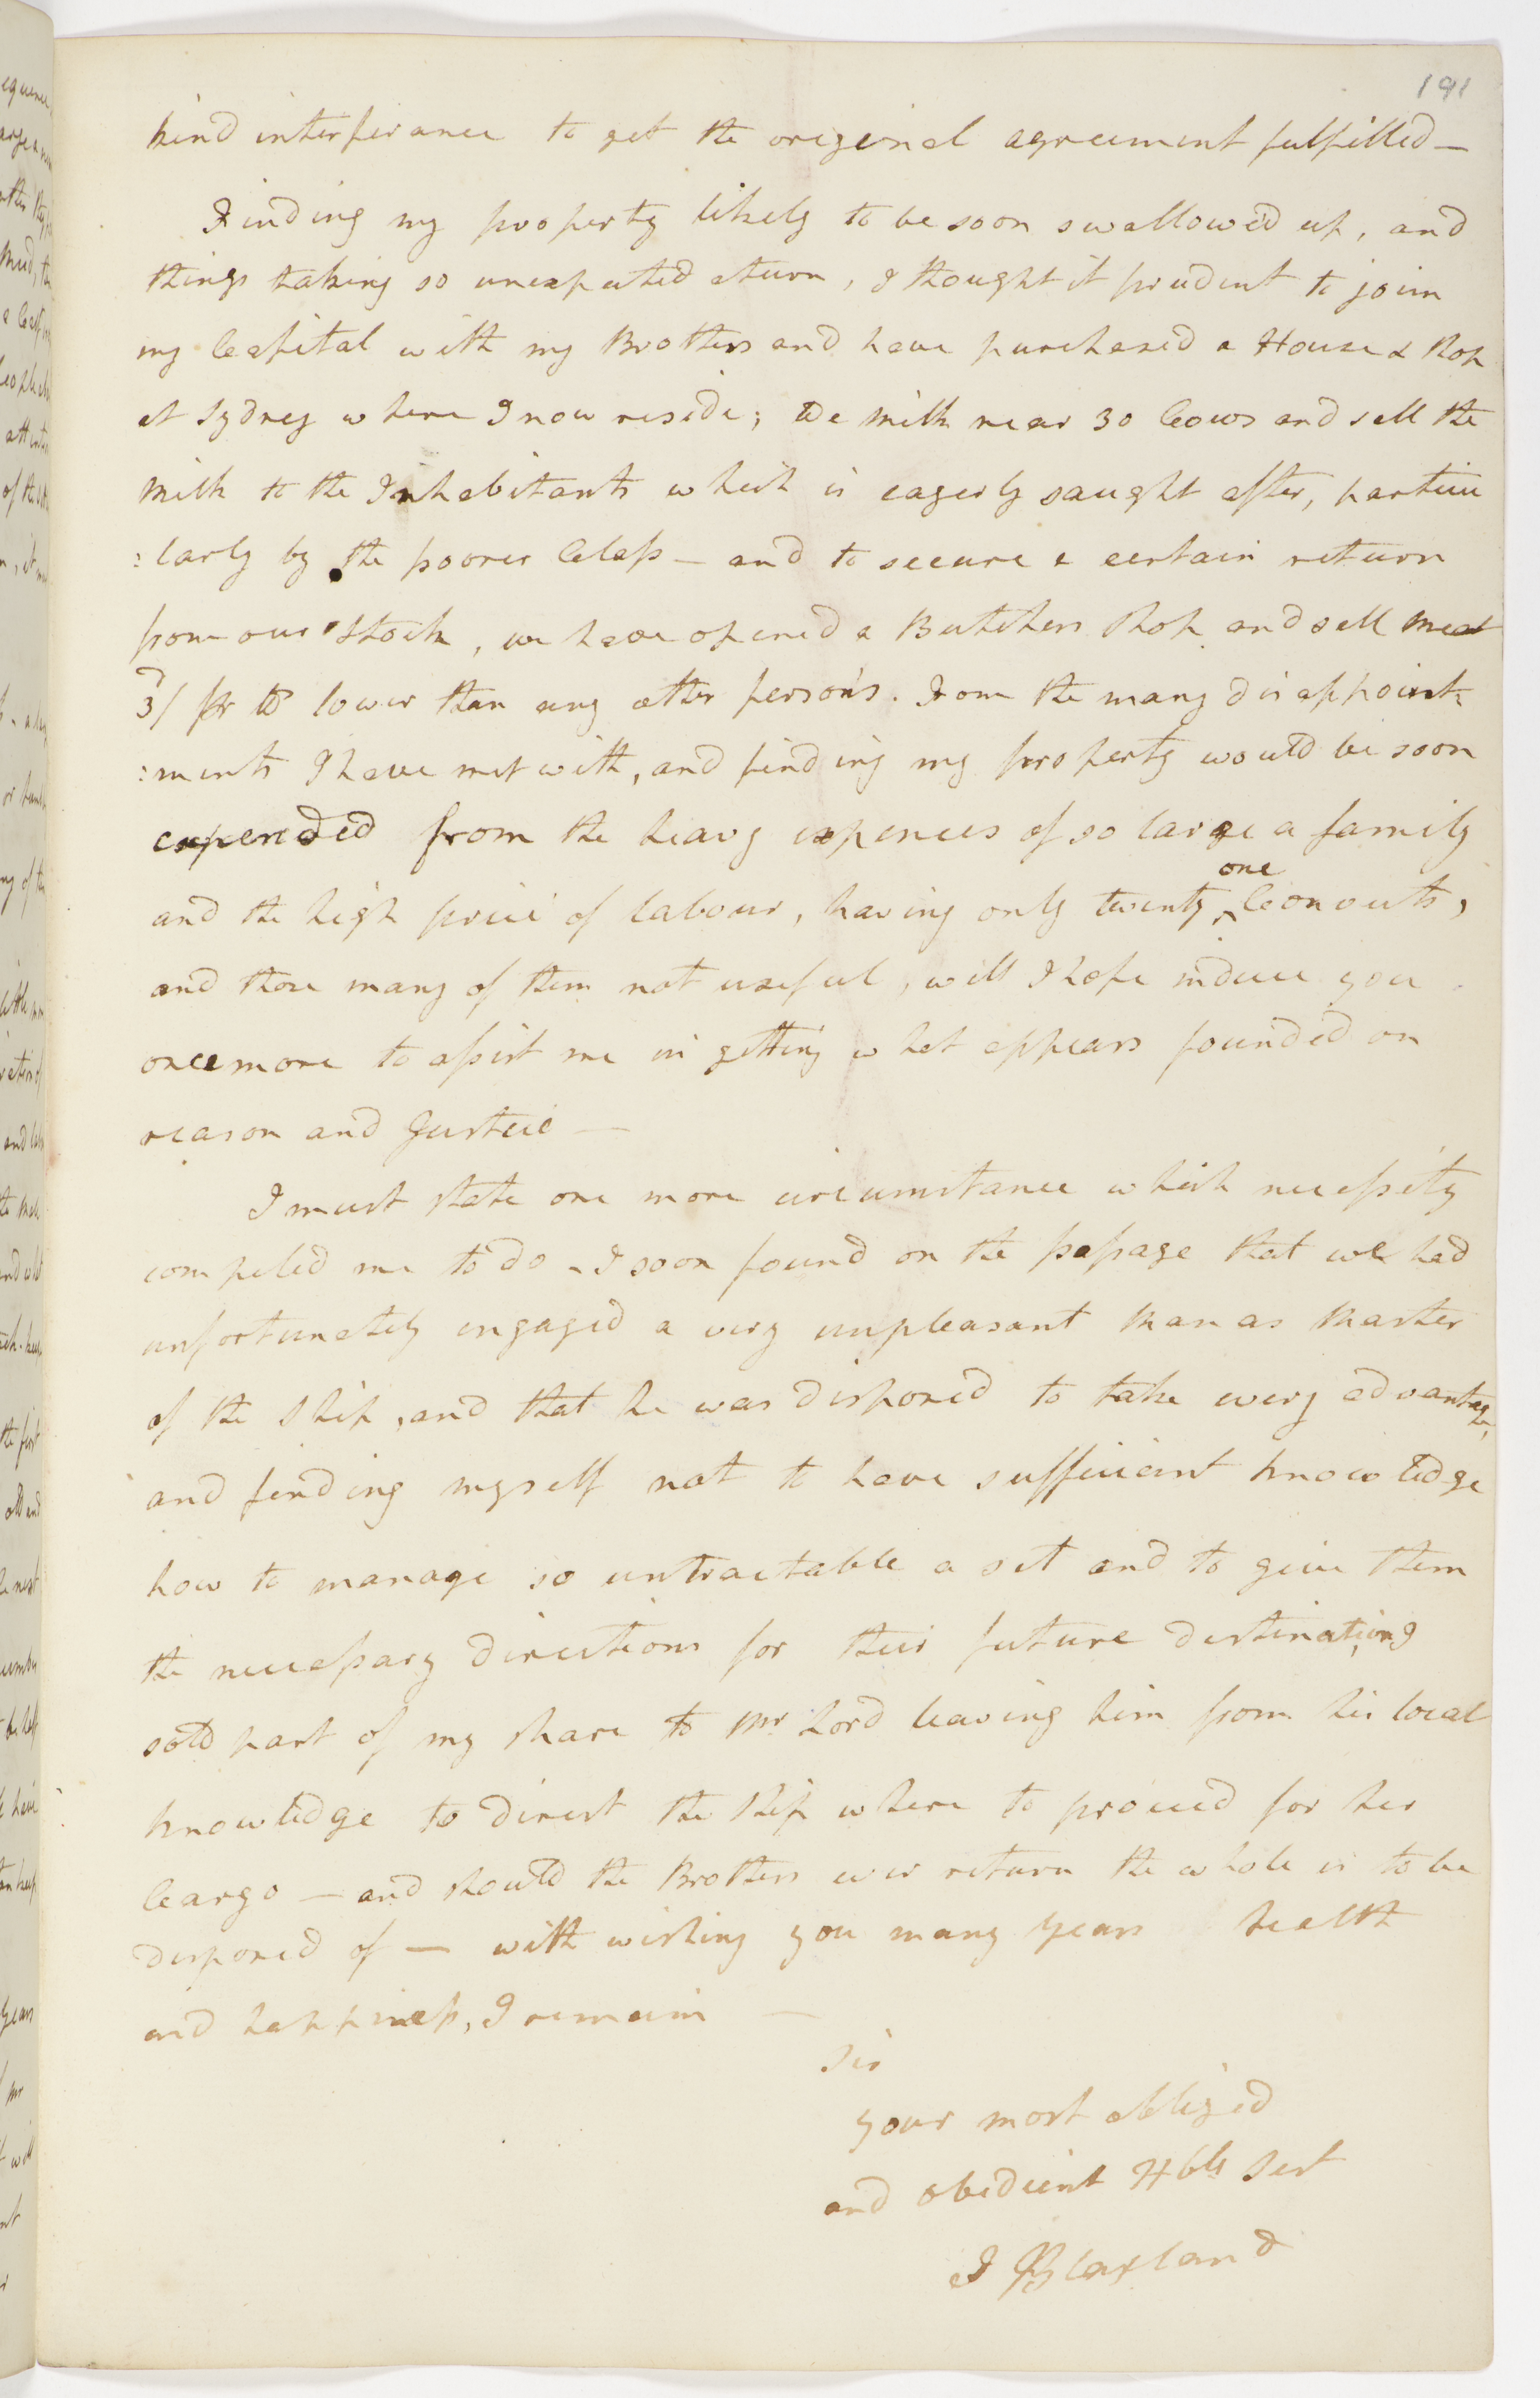 191
kind interferance to get the original agreement fulfilled —
Finding my property likely to be soon swallow'd up, and
things taking so unexpected a turn, I thought it prudent to join
my Capital with my Brothers and have purchased a House & Shop
at Sydney where I now reside; We milk near 30 Cows and sell the
Milk to the Inhabitants which is eagerly saught after, particu
:larly by the poorer Class — and to secure a certain return
from our Stock, we have opened a Butchers Shop and sell meat
3d/ pr lb lower than any other persons. From the many disappoint:
:ments I have met with, and finding my property would be soon
expended from the heavy expences of so large a family
and the high price of labour, having only twenty one Convicts,
and those many of them not useful, will I hope induce you
once more to assist me in getting what appears founded on
reason and Justice —
I must state one more circumstance which necessity
compeled me to do - I soon found on the passage that we had
unfortunately engaged a very unpleasant Man as Master
of the Ship, and that he was disposed to take every advantage,
and finding myself not to have sufficient knowledge
how to manage so untractable a set and to give them
the necessary directions for their future destination, I
sold part of my share to Mr Lord leaving him from his local
knowledge to direct the Ship where to proceed for her
Cargo — and should the Brothers ever return the whole is to be
disposed of — with wishing you many Years health
and happiness, I remain —
Sir
your most obliged
and obedient Hble Sert
J Blaxland